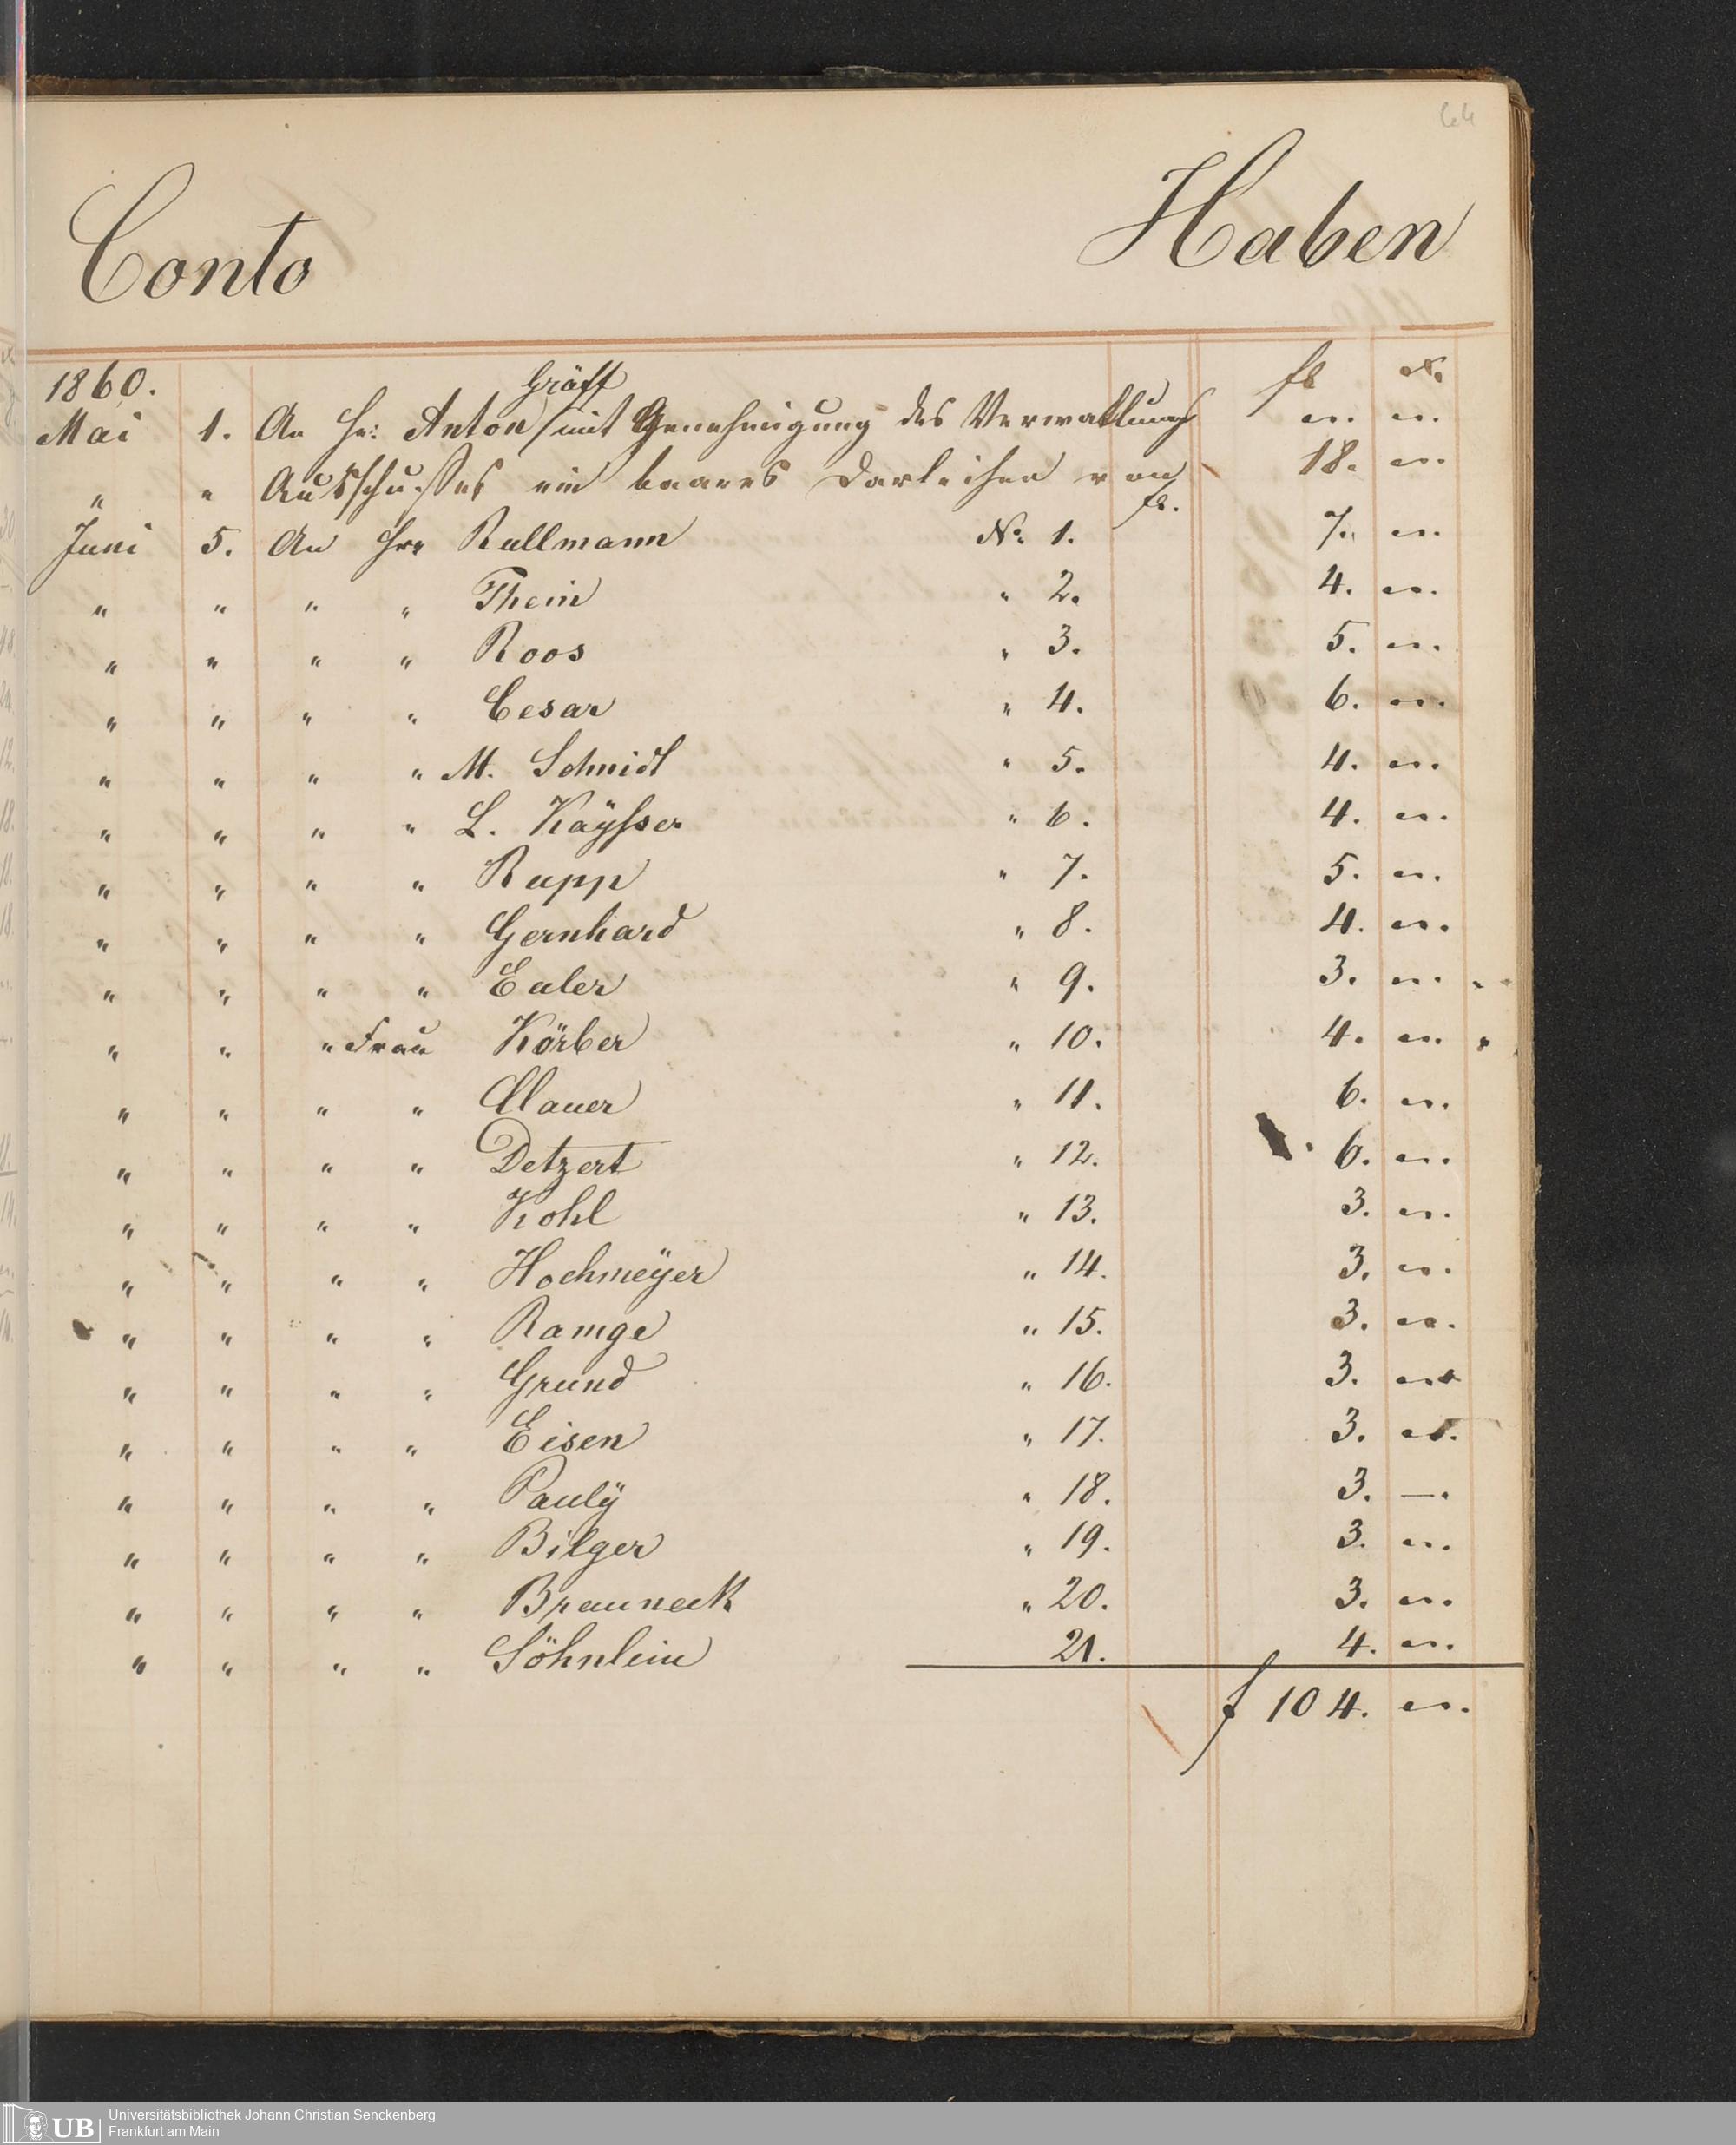 64
Conto Haben
1860. Gräff fl x.
Mai 1. An Hr: Anton mit Genehmigung des Verwaltungs „. „.
" " Ausschusses ein baares Darleihen von fl. 18. „.
Juni 5. An Hrr Rullmann No. 1. 7. „.
" " " " Thein " 2. 4. „.
" " " " Roos " 3. 5. „.
" " " " Cesar " 4. 6. „.
" " " " M. Schmidt " 5. 4. „.
" " " " L. Kaÿsser " 6. 4. „.
" " " " Rupp " 7. 5. „.
" " " " Gernhard " 8. 4. „.
" " " " Euler " 9. 3. „.
" " " Frau Körber " 10. 4. „.
" " " " Clauer " 11. 6. „.
" " " " Detzert " 12. 6. „.
" " " " Kohl " 13. 3. „.
" " " " Hochmeÿer " 14. 3. „.
" " " " Ramge " 15. 3. „.
" " " " Grund " 16. 3. „.
" " " " Eisen " 17. 3. „.
" " " " Paulÿ " 18. 3. —.
" " " " Bilger " 19. 3. „.
" " " " Brauneck " 20. 3. „.
" " " " Söhnlein 21. 4. „.
f 104. „.
UB Universitätsbibliothek Johann Christian Senckenberg
Frankfurt am Main